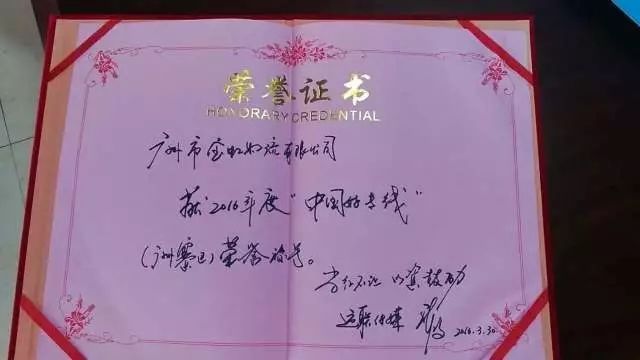 荣誉证书
HONORARY CREDENTIAL
广州市金虹物流有限公司
获2016年度"中国好专线"
(广州赛区)荣誉称号。
特发此证 以资鼓励
运联传媒
2016.3.30